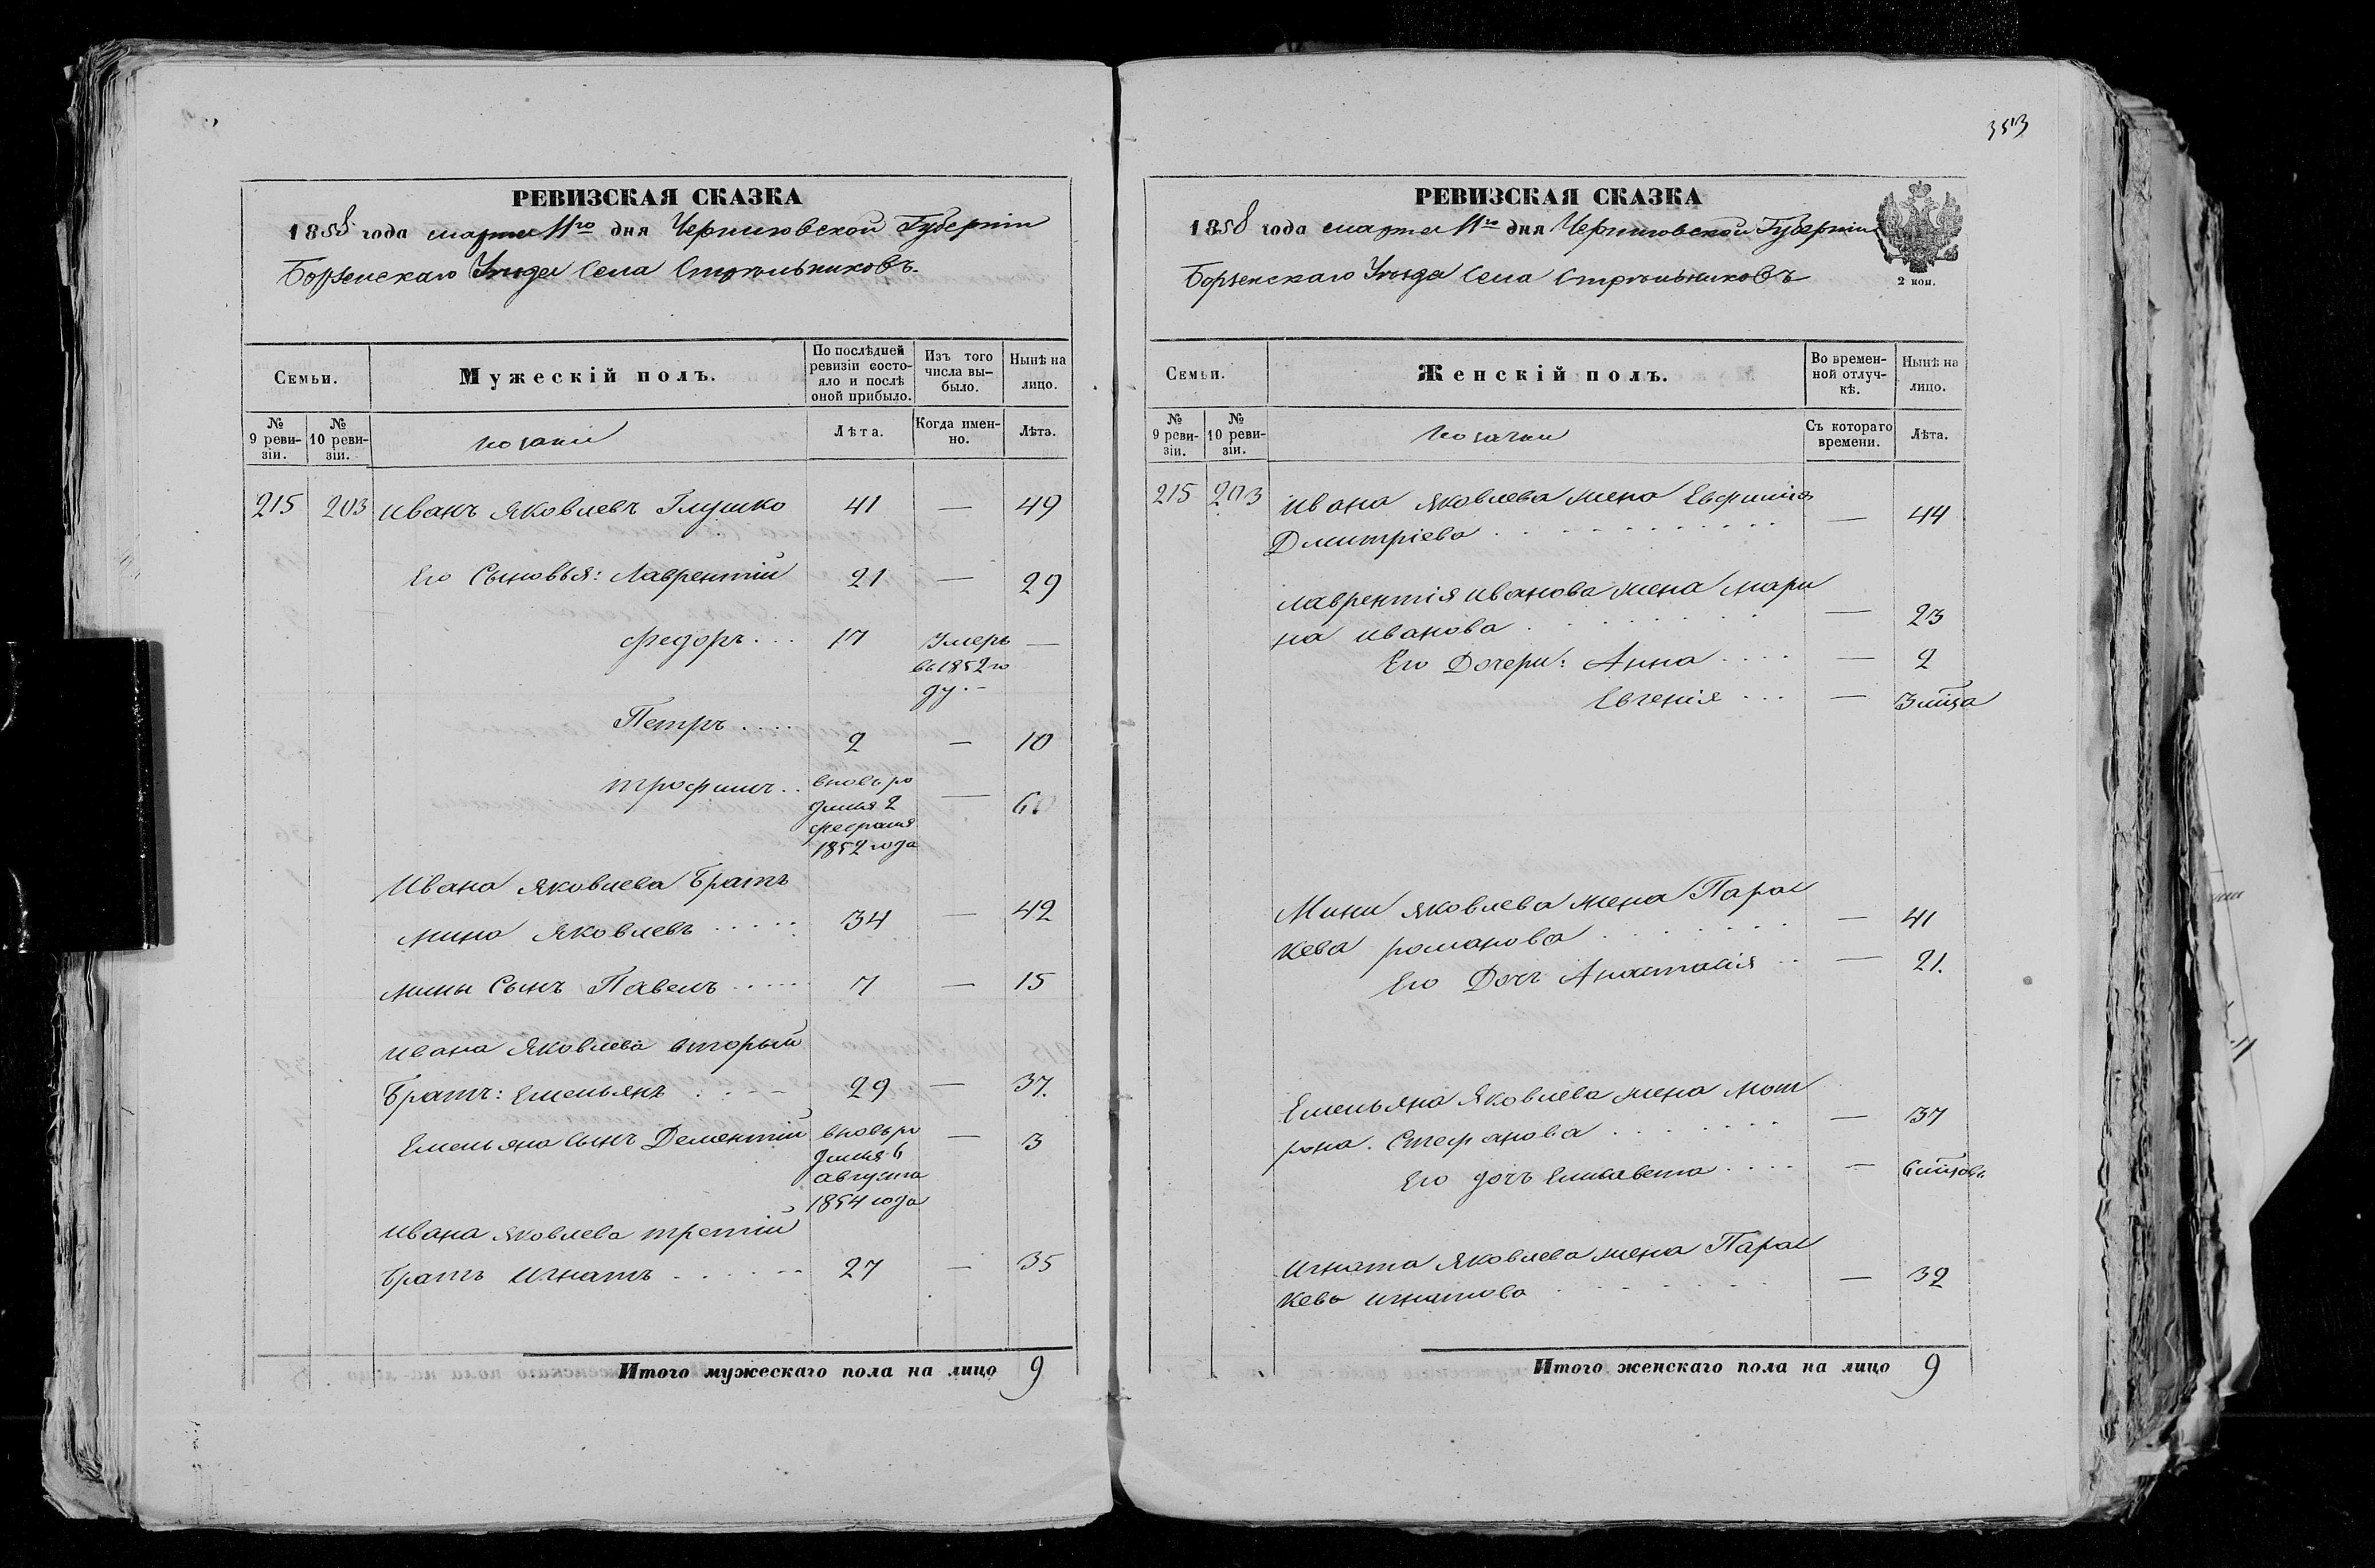 РЕВИЗСКАЯ СКАЗКА
1858 года марта 11го дня Черниговской Губерніи
Борзенскаго Уѣзда Села Стрѣльниковъ.
Семьи.
Мужескій полъ.
По послѣдней ревизіи состо-
яло и послѣ
оной прибыло.
Изъ того
числа вы-
было.
Нынѣ на
лицо.
№
9 реви-
зіи.
№
10 реви-
зіи.
козаки
Лѣта.
Когда имен-
но.
Лѣта.
215 203 Иванъ Яковлевъ Глушко 41 — 49
Его Сыновья: Лаврентій 21 — 29
Федоръ . . . 17 Умеръ —
въ 1852 го
ду. —
Петръ . . . . 2 — 10
Трофимъ . . вновь ро
дился 2
февраля
1852 года — 6
Ивана Яковлева Братъ
Мина Яковлевъ . . . . . 34 — 42
Мины Сынъ Павелъ . . . . . 7 — 15
Ивана Яковлева вторый
Братъ: Емельянъ . . . . 29 — 37.
Емельяна сынъ Дементій вновь ро — 3
дился 6
августа
1854 года
Ивана Яковлева третій
Братъ Игнатъ . . . . . . 27 — 35
Итого мужескаго пола на лицо 9
353
РЕВИЗСКАЯ СКАЗКА
1858 года марта 11го дня Черниговской Губерніи
Борзенскаго Уѣзда Села Стрѣльниковъ
2 коп.
Семьи.
Женскій полъ.
Во времен-
ной отлуч-
кѣ.
Нынѣ на
лицо.
№
9 реви-
зіи.
№
10 реви-
зіи.
козачки
Съ котораго
времени.
Лѣта.
215 203 Ивана Яковлева жена Евфимія
Дмитріева . . . . . . . . . . — 44
Лаврентія Иванова жена Мари
на Иванова . . . . . . . — 23
Его Дочери: Анна . . . . — 2
Евгенія . . . — 3 мца
Мины Яковлева жена Парас
кева Романова . . . . . . . — 41
Его Дочь Анастасія . . — 21.
Емельяна Яковлева жена Мот
рона. Стефанова . . . . . . . — 37
Его дочь Елисавета . . . . — 6 мцовъ
Игната Яковлева жена Парас
кева Игнатова . . . . . . — 32
Итого женскаго пола на лицо 9